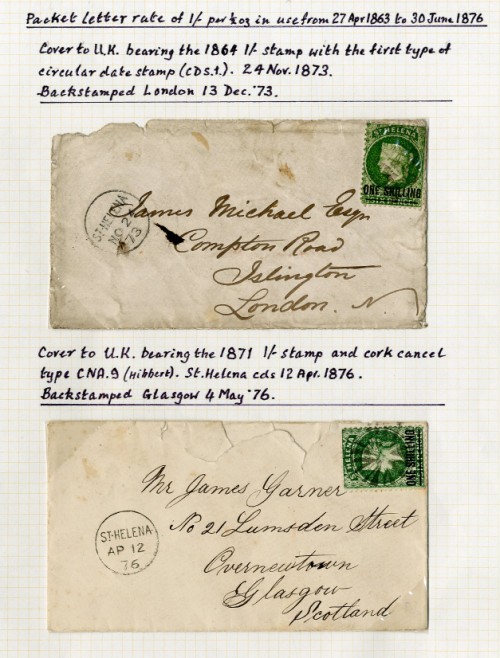 Packet Letter rate of 1/- per ½ oz in use from 27 Apr 1863 to 30 June 1876
Cover to U.K. bearing the 1864 1/- stamp with the first type of
circular date stamp (CDS.1.). 24 Nov. 1873.
Backstamped London 13 Dec. '73.
ST. HELENA
ONE SHILLING
ST. HELENA
NO 2
73
James Michael Esqr
Compton Road
Islington
London. N
Cover to U.K. bearing the 1871 1/- stamp and cork cancel
type CNA.9 (Hibbert). St. Helena cds 12 Apr. 1876.
Backstamped Glasgow 4 May '76.
ST. HELENA
ONE SHILLING
ST. HELENA
AP 12
76
Mr James Garner
No 21 Lumsden Street
Overnewtown
Glasgow
Scotland